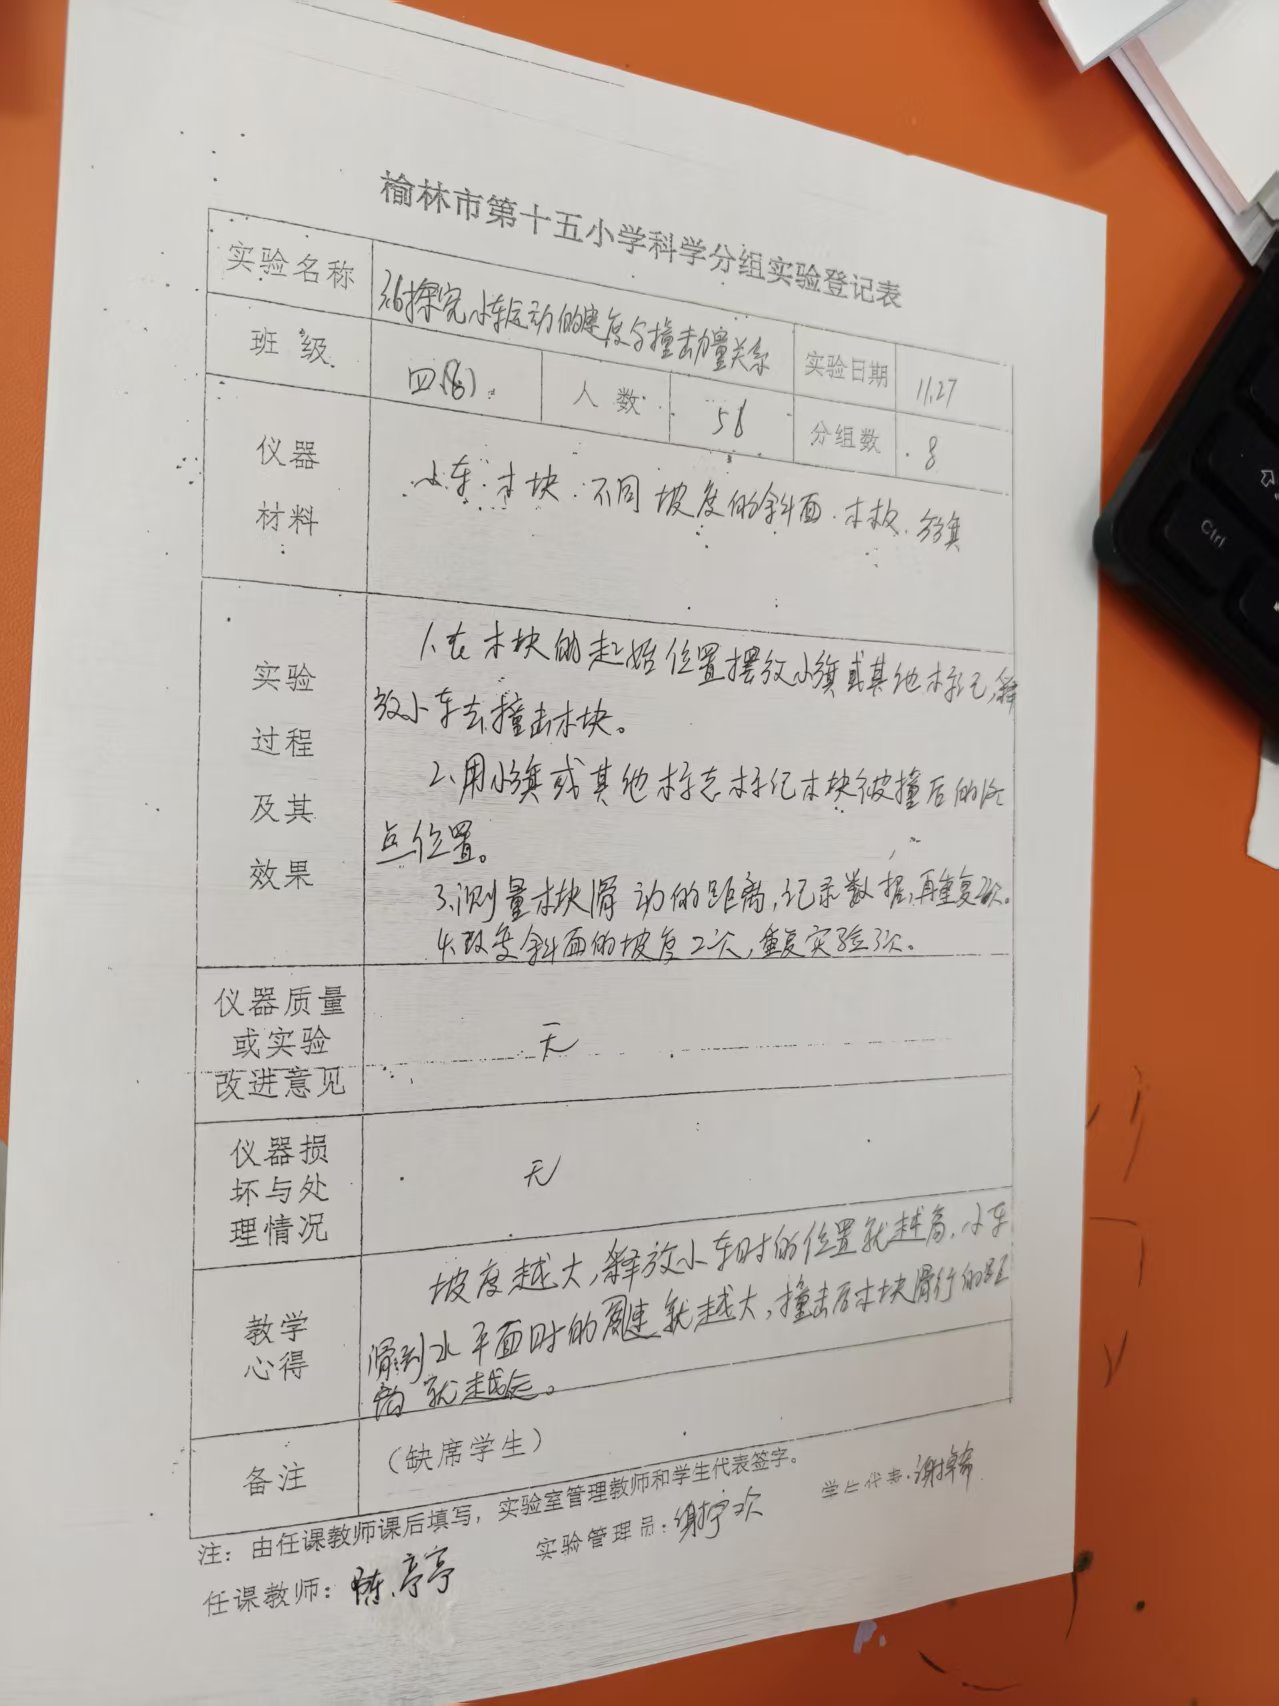 榆林市第十五小学科学分组实验登记表
实验名称 3.6探究小车运动的速度与撞击力量关系 实验日期 11.27
班级 四(8) 人数 58 分组数 8
仪器
材料
小车. 木块. 不同坡度的斜面. 木板. 小旗
实验
过程
及其
效果
1.在木块的起始位置摆放小旗或其他标记,释
放小车去撞击木块。
2.用小旗或其他标志标记木块被撞后的终
点位置。
3.测量木块滑动的距离,记录数据,再重复2次。
4.改变斜面的坡度2次,重复实验3次。
仪器质量
或实验
改进意见
无
仪器损
坏与处
理情况
无
教学
心得
坡度越大,释放小车时的位置就越高,小车
滑到水平面时的速就越大,撞击后木块滑行的距
离就越远。
备注 (缺席学生)
注:由任课教师课后填写,实验室管理教师和学生代表签字。
任课教师: 陈亭亭 实验管理员: 学生代表:
Ctrl